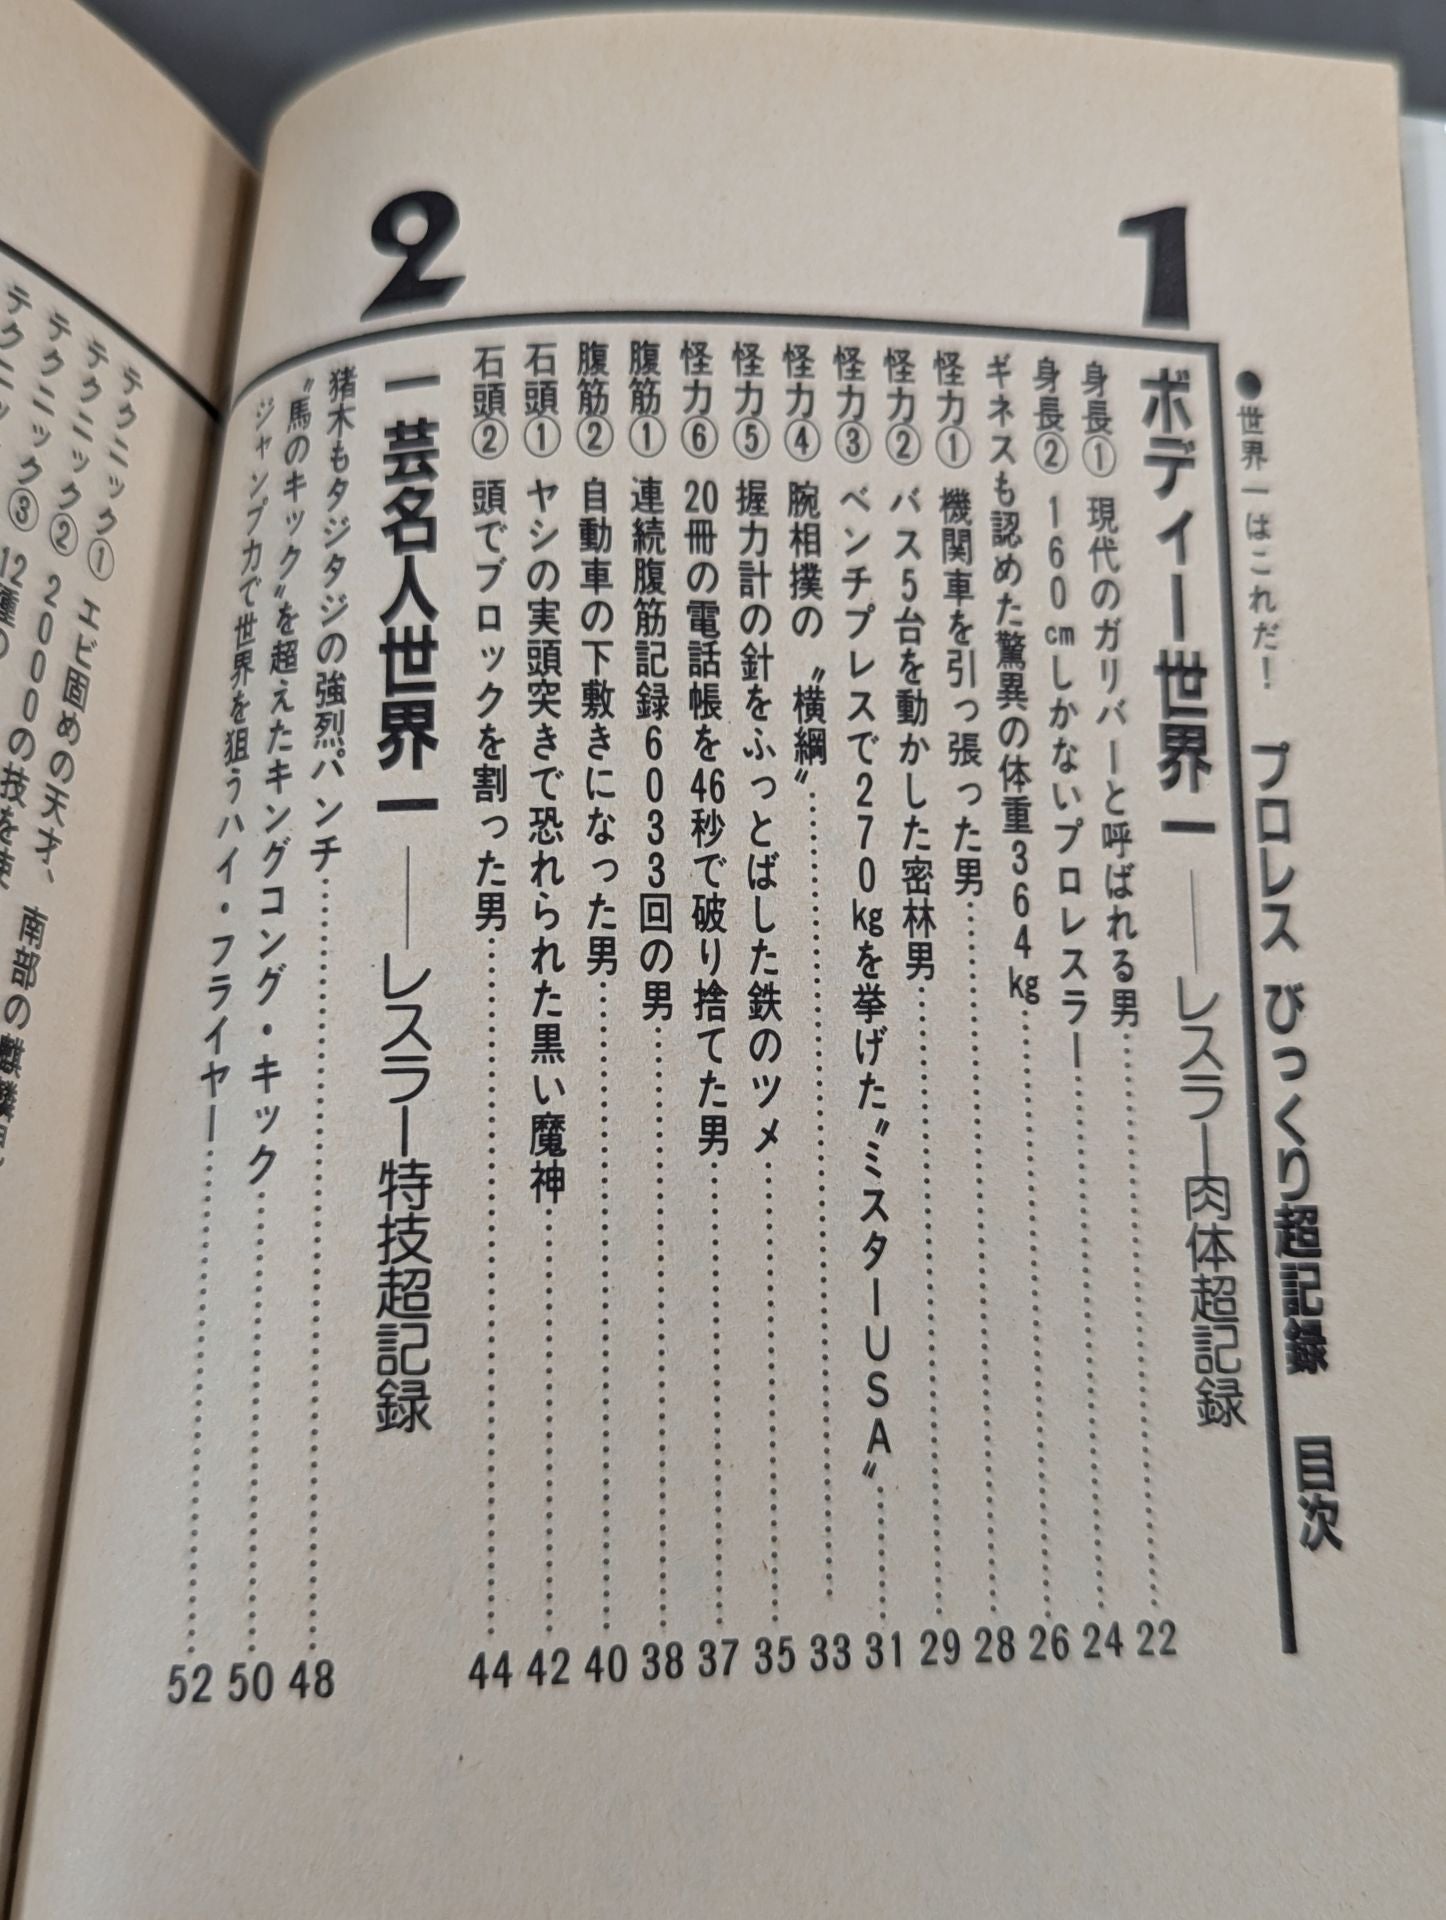 ●世界一はこれだ！ プロレス びっくり超記録 目次
1 ボディー世界一——レスラー肉体超記録
身長① 現代のガリバーと呼ばれる男……22
身長② 160cmしかないプロレスラー……24
ギネスも認めた驚異の体重364kg……26
怪力① 機関車を引っ張った男……28
怪力② バス5台を動かした密林男……29
怪力③ ベンチプレスで270kgを挙げた〝ミスターUSA〟……31
怪力④ 腕相撲の〝横綱〟……33
怪力⑤ 握力計の針をふっとばした鉄のツメ……35
怪力⑥ 20冊の電話帳を46秒で破り捨てた男……37
腹筋① 連続腹筋記録6033回の男……38
腹筋② 自動車の下敷きになった男……40
石頭① ヤシの実頭突きで恐れられた黒い魔神……42
石頭② 頭でブロックを割った男……44
2 一芸名人世界一——レスラー特技超記録
猪木もタジタジの強烈パンチ……48
〝馬のキック〟を超えたキングコング・キック……50
ジャンプ力で世界を狙うハイ・フライヤー……52
テクニック① エビ固めの天才、南部の麒麟児
テクニック② 2000の技を使
テクニック③ 12種の
テクニッ